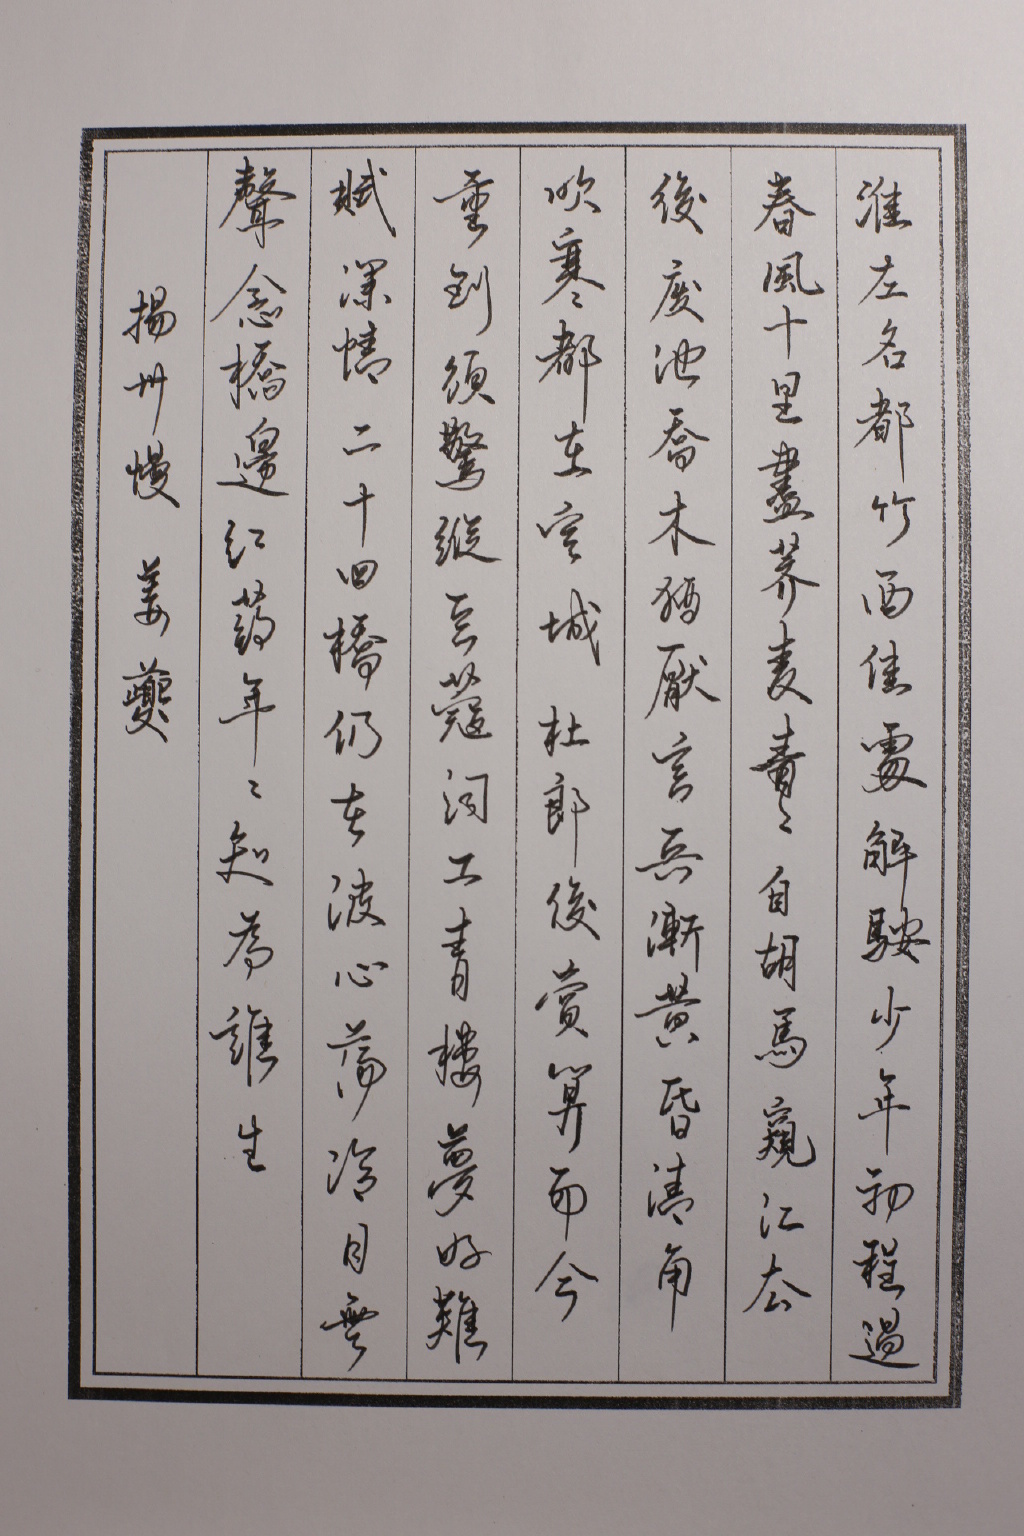 淮左名都竹西佳處解鞍少年初程過
春風十里盡薺麦青〻自胡馬窺江去
後廢池喬木猶厭言兵漸黄昏清角
吹寒都在空城 杜郎後賞算而今
重到須驚縱豆蔻詞工青樓夢好難
賦深情二十四橋仍在波心蕩冷月無
聲念橋邊紅药年〻知為誰生
揚州慢 姜夔